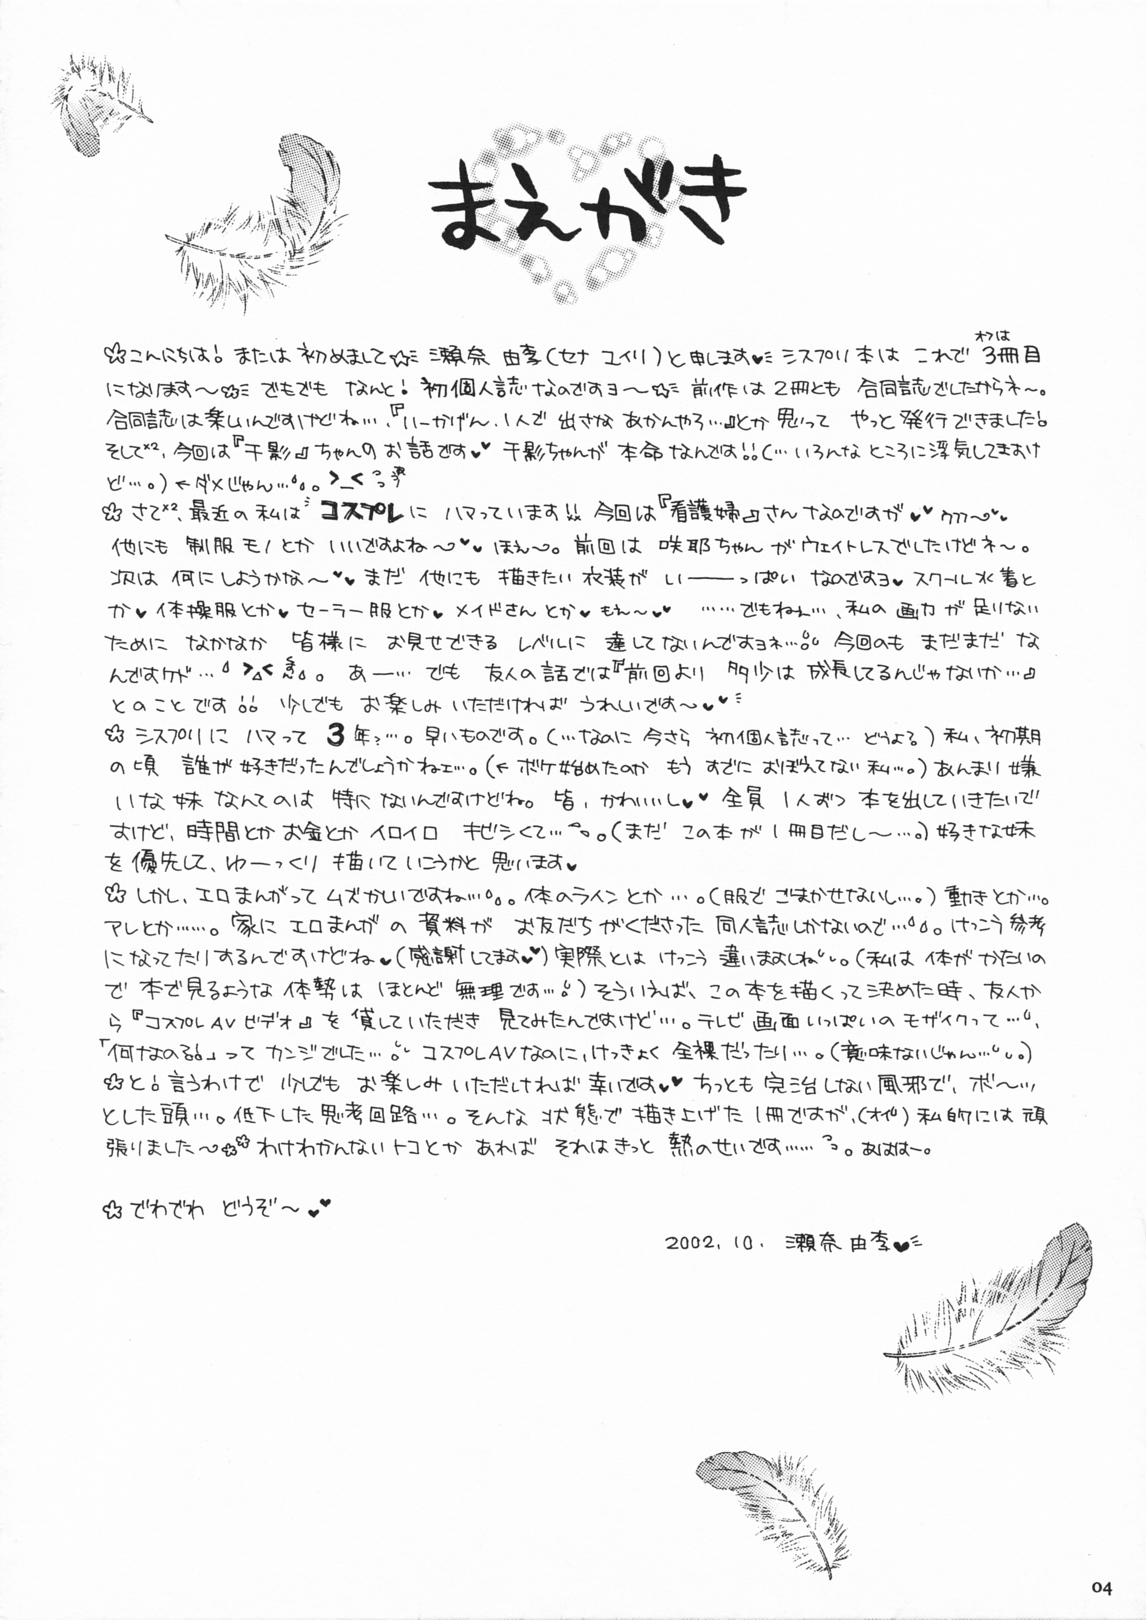 まえがき
☆こんにちは！または初めまして☆ミ 瀬奈 由李(セナ ユイリ)と申します♥ミ シスプリ本は これで 3冊目
になります〜☆ミ でもでも なんと！初個人誌なのですヨ〜☆ミ 前作は2冊とも 合同誌でしたからネ〜。
合同誌は楽しいんですけどね…、『いーかげん、1人で 出さな あかんやろ…』とか思って やっと発行できました！
そして×2、今回は『千影』ちゃんのお話です♥ 千影ちゃんが 本命なんです!!(…いろんな ところに浮気してますけ
ど…。)←ダメじゃん…。 >_<
☆さて×2、最近の私は コスプレに ハマっています!! 今回は『看護婦』さん なのですが♥♥ ウフフ〜♥♥
他にも 制服モノとか いいですよね〜♥♥ ほえ〜。前回は 咲耶ちゃんがウェイトレスでしたけどネ〜。
次は 何にしようかな〜♥♥ まだ 他にも 描きたい衣装が いーーっぱい なのですヨ♥ スクール水着と
か♥体操服とか♥セーラー服とか♥メイドさんとか♥もえ〜♥♥ ……でもねぇ…、私の画力が足りない
ために なかなか 皆様に お見せできる レベルに 達してないんですヨネ… 今回のも まだまだ な
んですケド… >_< 。あー… でも 友人の話では『前回より 多少は 成長してるんじゃないか…』
とのことです!! 少しでも お楽しみいただければ うれしいです〜♥♥
☆シスプリに ハマって 3年?…。早いものです。(…なのに 今さら 初個人誌って… どうよ？)私、初期
の頃 誰が好きだったんでしょうかねェ…。(←ボケ始めたのか もう すでに おぼえてない私…。)あんまり嫌
いな妹 なんてのは 特にないんですけどね。皆、かわいいし♥♥ 全員 1人ずつ 本を出していきたいで
すけど、時間とか お金とか イロイロ キビシくて…。(まだ この本が 1冊目だし〜…。)好きな妹
を優先して、ゆーっくり 描いていこうかと 思います♥
☆しかし、エロまんがって ムズかしいですね…。体のラインとか…。(服で ごまかせないし…。)動きとか…。
アレとか……。家に エロまんがの 資料が お友だちがくださった 同人誌しかないので…。けっこう参考
になってたりするんですけどね♥(感謝してます♥)実際とは けっこう 違いますしね。(私は 体がかたいの
で 本で見るような 体勢は ほとんど 無理です…)そういえば、この本を描くって決めた時、友人か
ら『コスプレAVビデオ』を 貸していただき 見てみたんですけど…。テレビ画面いっぱいのモザイクって…、
「何なのる!!」ってカンジでした… コスプレAVなのに、けっきょく 全裸だったり…。(意味ないじゃん…。)
☆と！言うわけで 少しでも お楽しみいただければ幸いです♥♥ ちっとも 完治しない風邪で、ボ〜ッ
とした頭…。低下した思考回路…。そんな 状態で 描き上げた 1冊ですが、(オイ)私的には頑
張りました〜☆☆ わけわかんないトコとか あれば それはきっと 熱のせいです……。あはは-。
☆でわでわ どうぞ〜♥♥
2002.10. 瀬奈 由李♥ミ
04